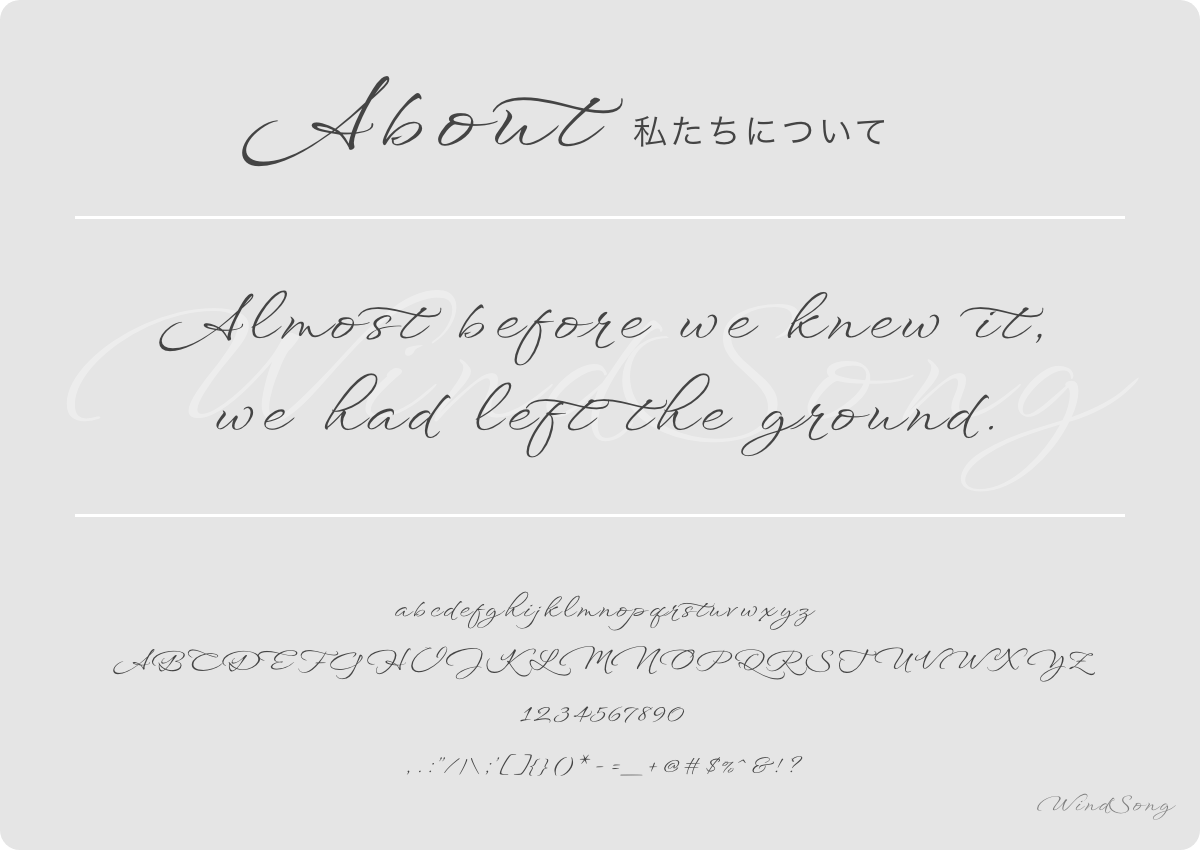 About 私たちについて
WindSong
Almost before we knew it,
we had left the ground.
abcdefghijklmnopqrstuvwxyz
ABCDEFGHIJKLMNOPQRSTUVWXYZ
1234567890
, . : " / | \ ; ' [ ] { } ( ) * - = _ + @ # $ % ^ & ! ?
WindSong